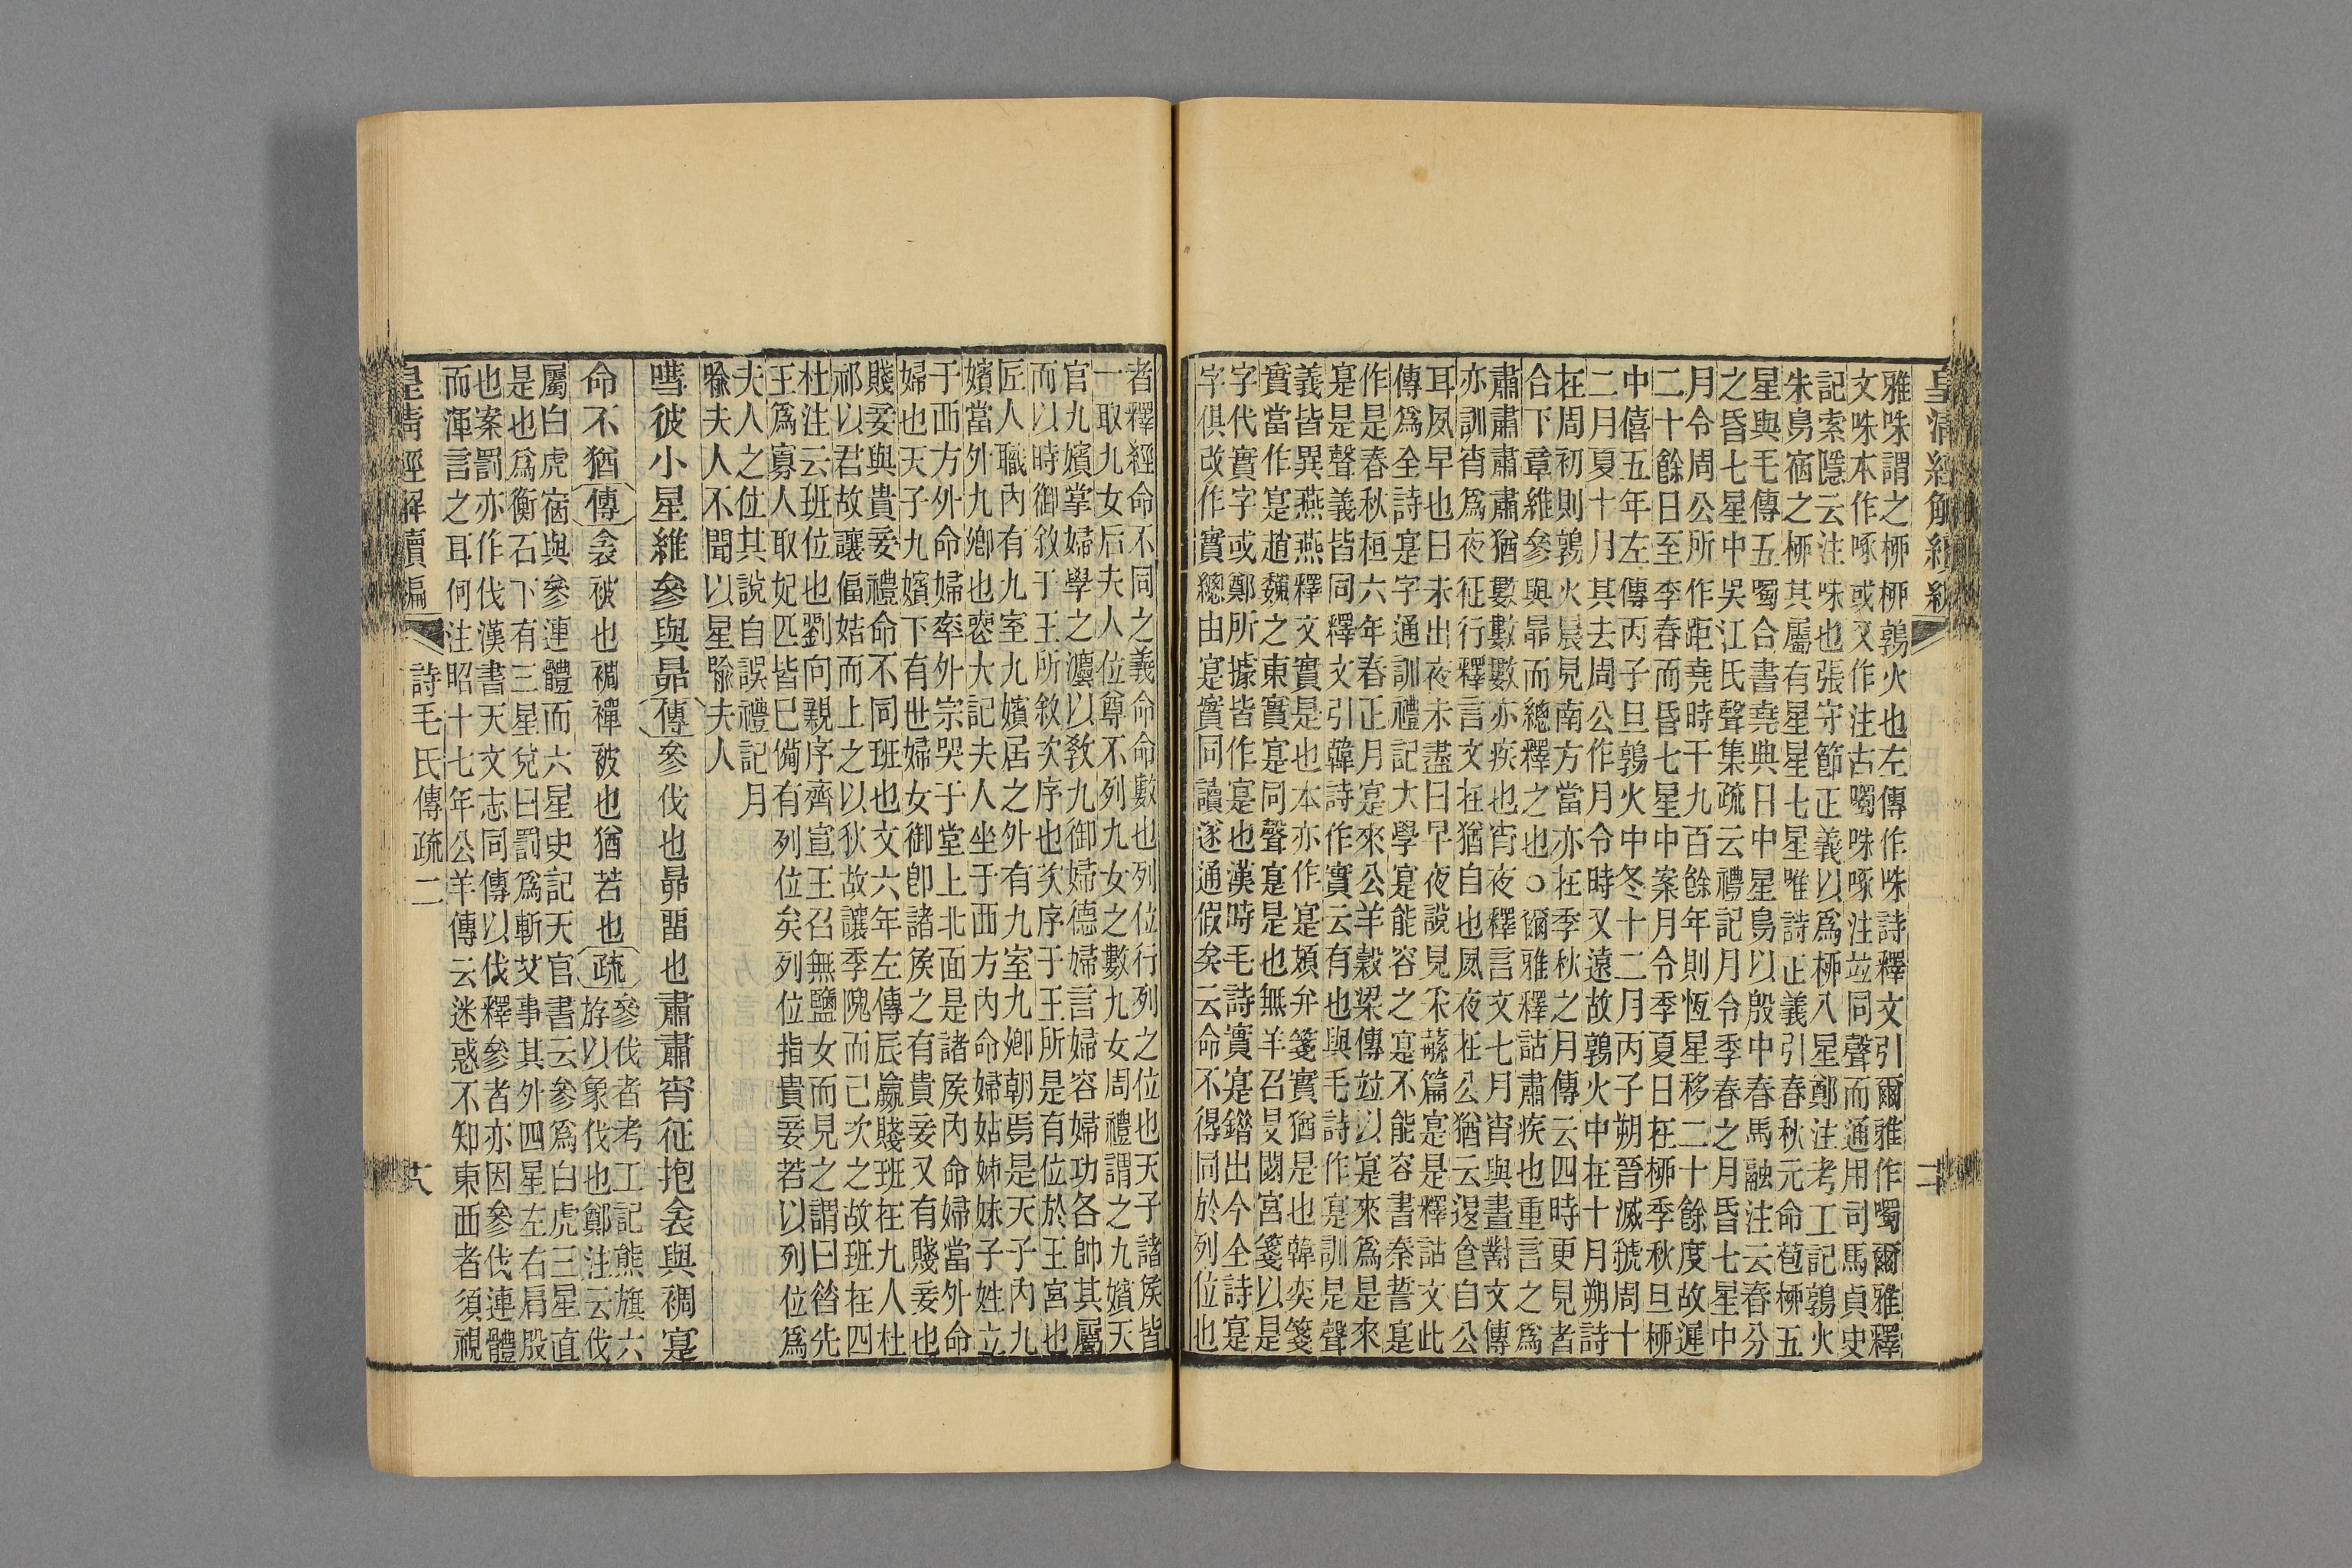 雅咮謂之柳柳鶉火也左傳作咮詩釋文引爾雅作噣爾雅釋
文咮本作啄或又作注古噣咮啄注竝同聲而通用司馬貞史
記索隱云注咮也張守節正義以爲柳八星鄭注考工記鶉火
朱鳥宿之柳其屬有星星七星唯詩正義引春秋元命苞柳五
星與毛傳五噣合書堯典日中星鳥以殷中春馬融注云春分
之昏七星中吳江氏聲集疏云禮記月令季春之月昏七星中
月令周公所作距堯時千九百餘年則恆星移二十餘度故遲
二十餘日至季春而昏七星中案月令季夏日在柳季秋旦柳
中僖五年左傳丙子旦鶉火中冬十二月丙子朔晉滅虢周十
二月夏十月其去周公作月令時又遠故鶉火中在十月朔詩
在周初則鶉火晨見南方當亦在季秋之月傳云四時更見者
合下章維參與昴而總釋之也○爾雅釋詁肅疾也重言之爲
肅肅肅肅猶數數數數亦疾也宵夜釋言文七月宵與晝對文傳
亦訓宵爲夜征行釋言文在猶自也夙夜在公猶云退食自公
耳夙早也日未出夜未盡曰早夜說見采蘩篇寔是釋詁文此
傳爲全詩寔字通訓禮記大學寔能容之寔不能容書秦誓寔
作是春秋桓六年春正月寔來公羊穀梁傳竝以寔來爲是來
寔是聲義皆同釋文引韓詩作實云有也與毛詩作寔訓是聲
義皆異燕燕釋文實是也本亦作寔頍弁箋實猶是也韓奕箋
實當作寔趙魏之東實寔同聲寔是也無羊召旻閟宮箋以是
字代實字或鄭所據皆作寔也漢時毛詩實寔錯出今全詩寔
字俱改作實總由寔實同讀遂通假矣云命不得同於列位也
者釋經命不同之義命命數也列位行列之位也天子諸侯皆
一取九女后夫人位尊不列九女之數九女周禮謂之九嬪天
官九嬪掌婦學之灋以敎九御婦德婦言婦容婦功各帥其屬
而以時御敘于王所敘次序也次序于王所是有位於王宮也
匠人職內有九室九嬪居之外有九室九卿朝焉是天子內九
嬪當外九卿也喪大記夫人坐于西方內命婦姑姊妹子姓立
于西方外命婦率外宗哭于堂上北面是諸侯內命婦當外命
婦也天子九嬪下有世婦女御卽諸侯之有貴妾又有賤妾也
賤妾與貴妾禮命不同班也文六年左傳辰嬴賤班在九人杜
祁以君故讓偪姞而上之以狄故讓季隗而己次之故班在四
杜注云班位也劉向親序齊宣王召無鹽女而見之謂曰昝先
王爲寡人取妃匹皆已備有列位矣列位指貴妾若以列位爲
夫人之位其說自誤禮記月
喩夫人不聞以星喩夫人
嘒彼小星維參與昴傳參伐也昴畱也肅肅宵征抱衾與裯寔
命不猶傳衾被也裯襌被也猶若也疏參伐者考工記熊旗六
斿以象伐也鄭注云伐
屬白虎宿與參連體而六星史記天官書云參爲白虎三星直
是也爲衡石下有三星兌曰罰爲斬艾事其外四星左右肩股
也案罰亦作伐漢書天文志同傳以伐釋參者亦因參伐連體
而渾言之耳何注昭十七年公羊傳云迷惑不知東西者須視
皇淸經解續編 詩毛氏傳疏二